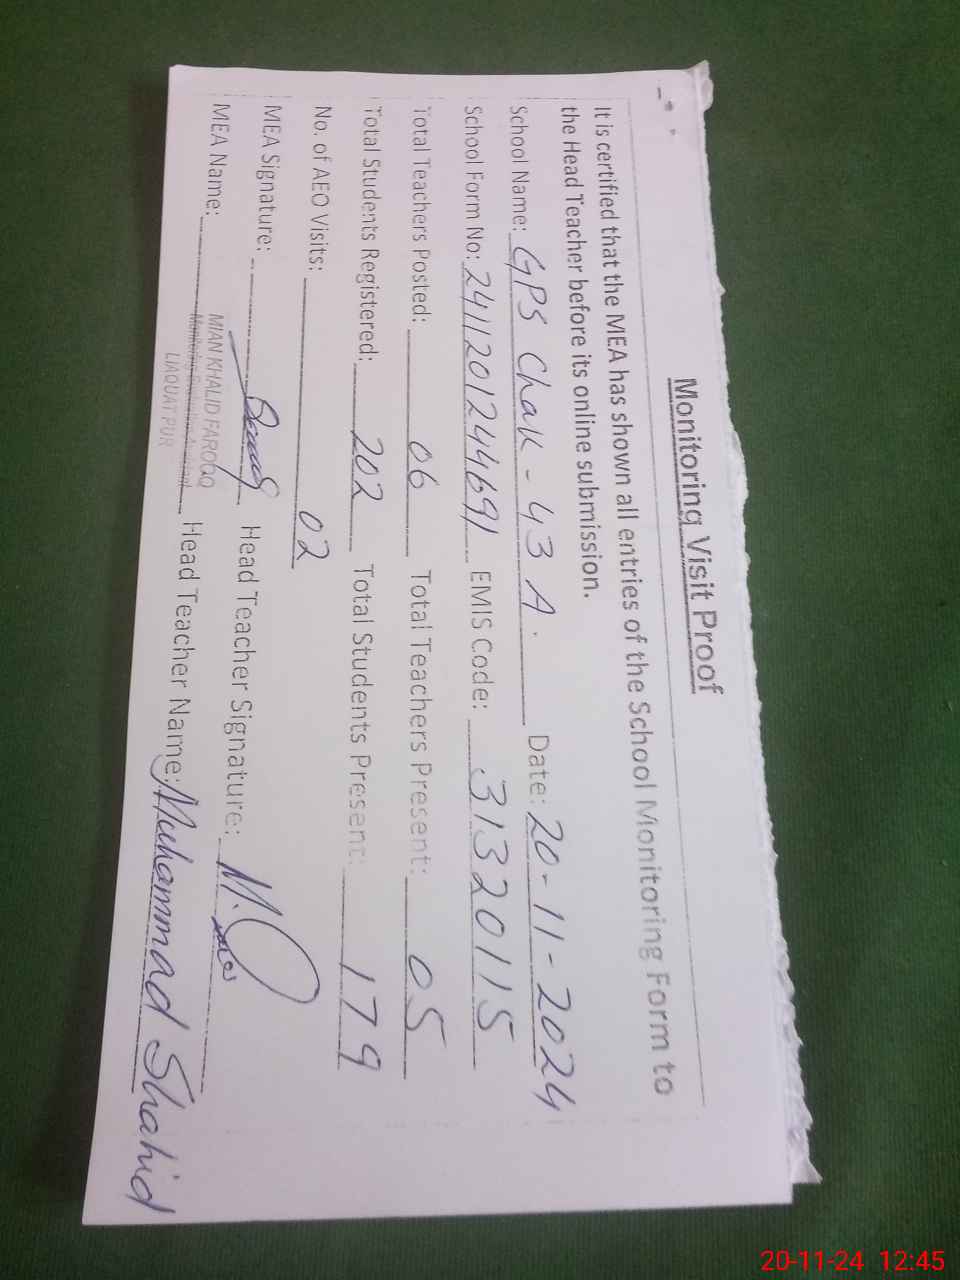 Monitoring Visit Proof
It is certified that the MEA has shown all entries of the School Monitoring Form to
the Head Teacher before its online submission.
School Name: GPS Chak - 43 A. Date: 20-11-2024
School Form No: 241120124469 1 EMIS Code: 31320115
Total Teachers Posted: 06 Total Teachers Present: 05
Total Students Registered: 202 Total Students Present: 179
No. of AEO Visits: 02
MEA Signature: Head Teacher Signature: M.
MEA Name: MIAN KHALID FAROOQ Head Teacher Name: Muhammad Shahid
Monitoring Evaluation Assistant
LIAQUAT PUR
20-11-24 12:45